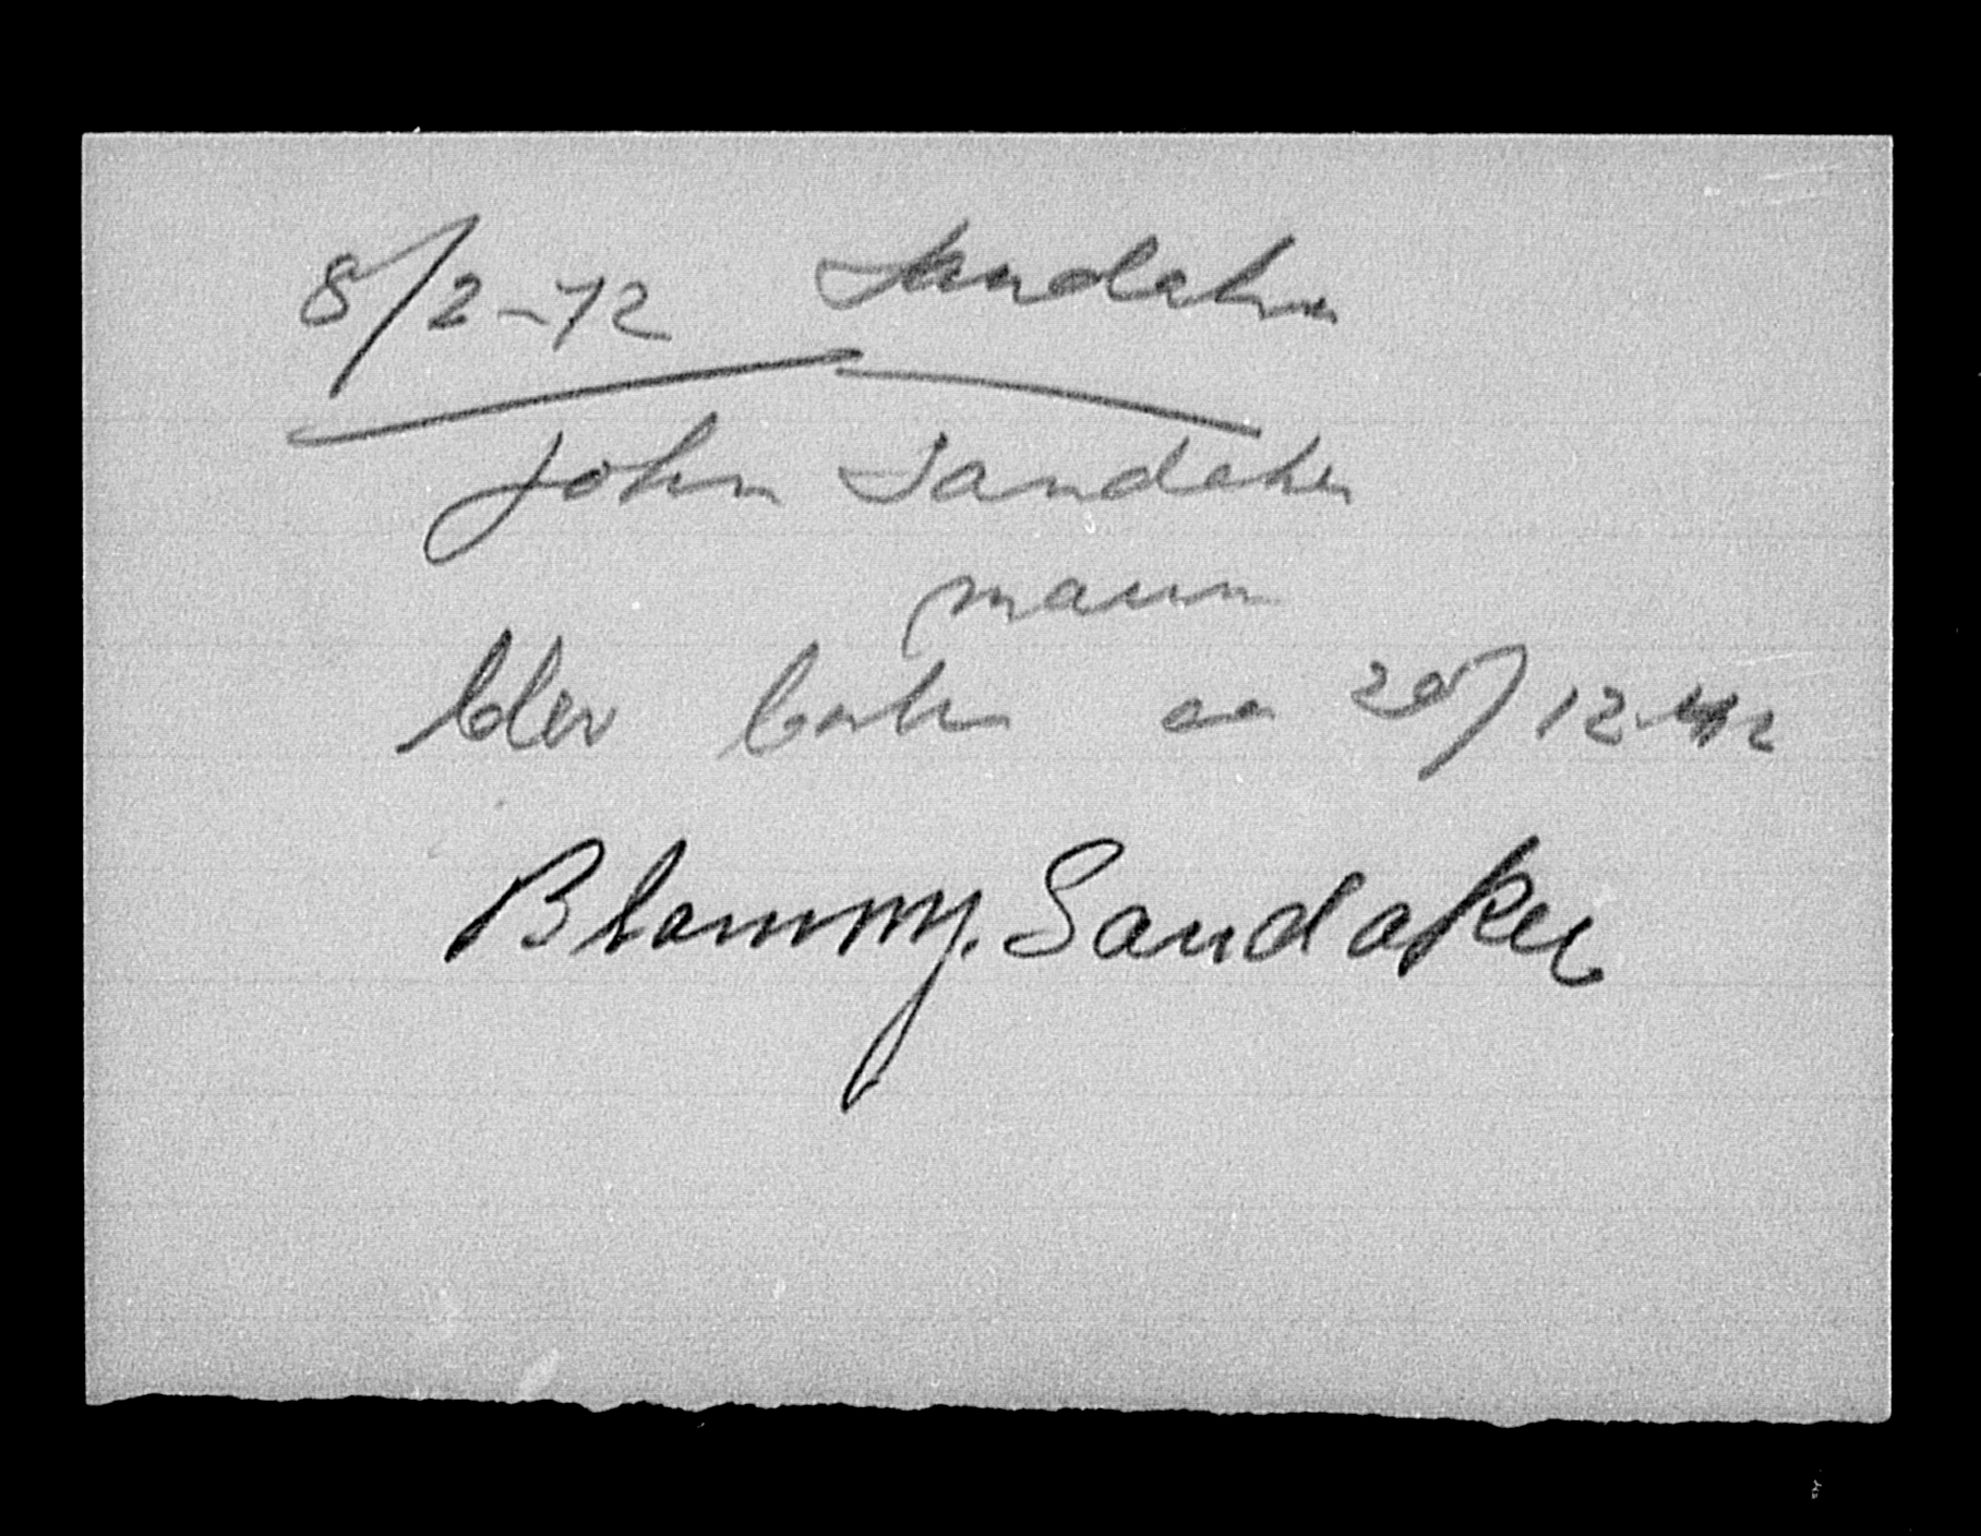 8/2-72 Sandaker
John Sandaker
mann
blev
20/12 42
Blammy. Sandaker